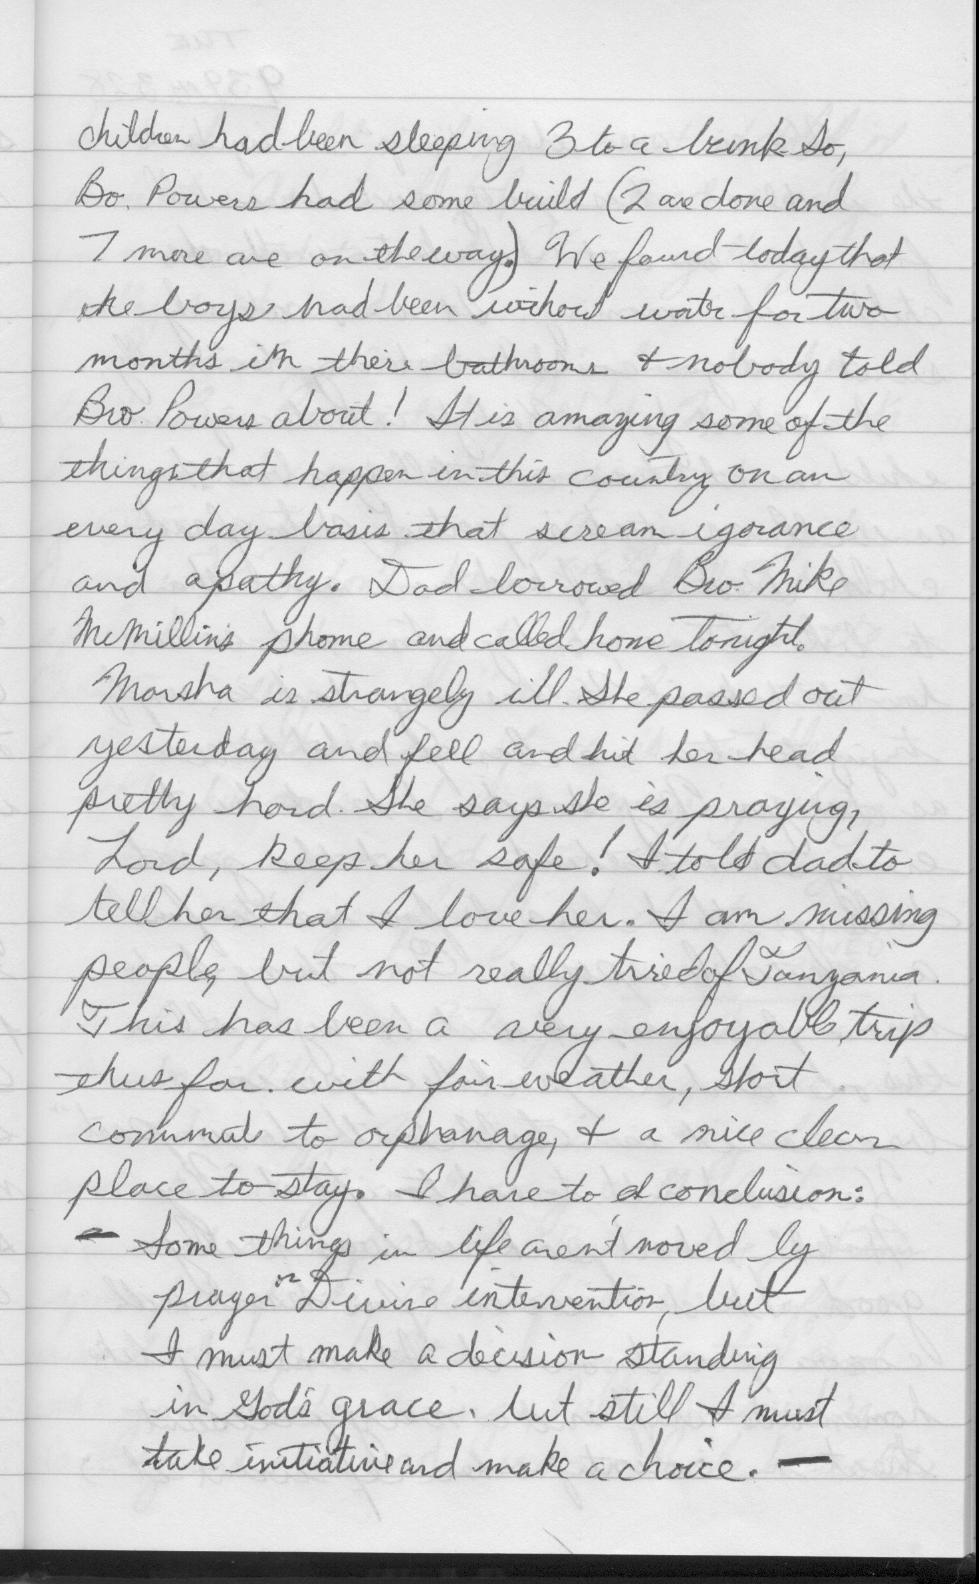 children had been sleeping 3 to a bunk So,
Bo. Powers had some build (2 are done and
7 more are on the way.) We found today that
the boys had been without water for two
months in their bathrooms & nobody told
Bro. Powers about! It is amazing some of the
things that happen in this country on an
every day basis that scream igorance
and apathy. Dad borrowed Bro. Mike
McMillin's phome and called home tonight.
Marsha is strangely ill. She passed out
yesterday and fell and hit her head
pretty hard. She says she is praying,
Lord, keep her safe! I told dad to
tell her that I love her. I am missing
people, but not really tired of Tanzania.
This has been a very enjoyable trip
thus far. with fair weather, short
commute to orphanage, & a nice clean
place to stay. I have to a conclusion:
- Some things in life aren't moved by
prayer or Divine intervention, but
I must make a decision standing
in God's grace. but still I must
take initiative and make a choice. -